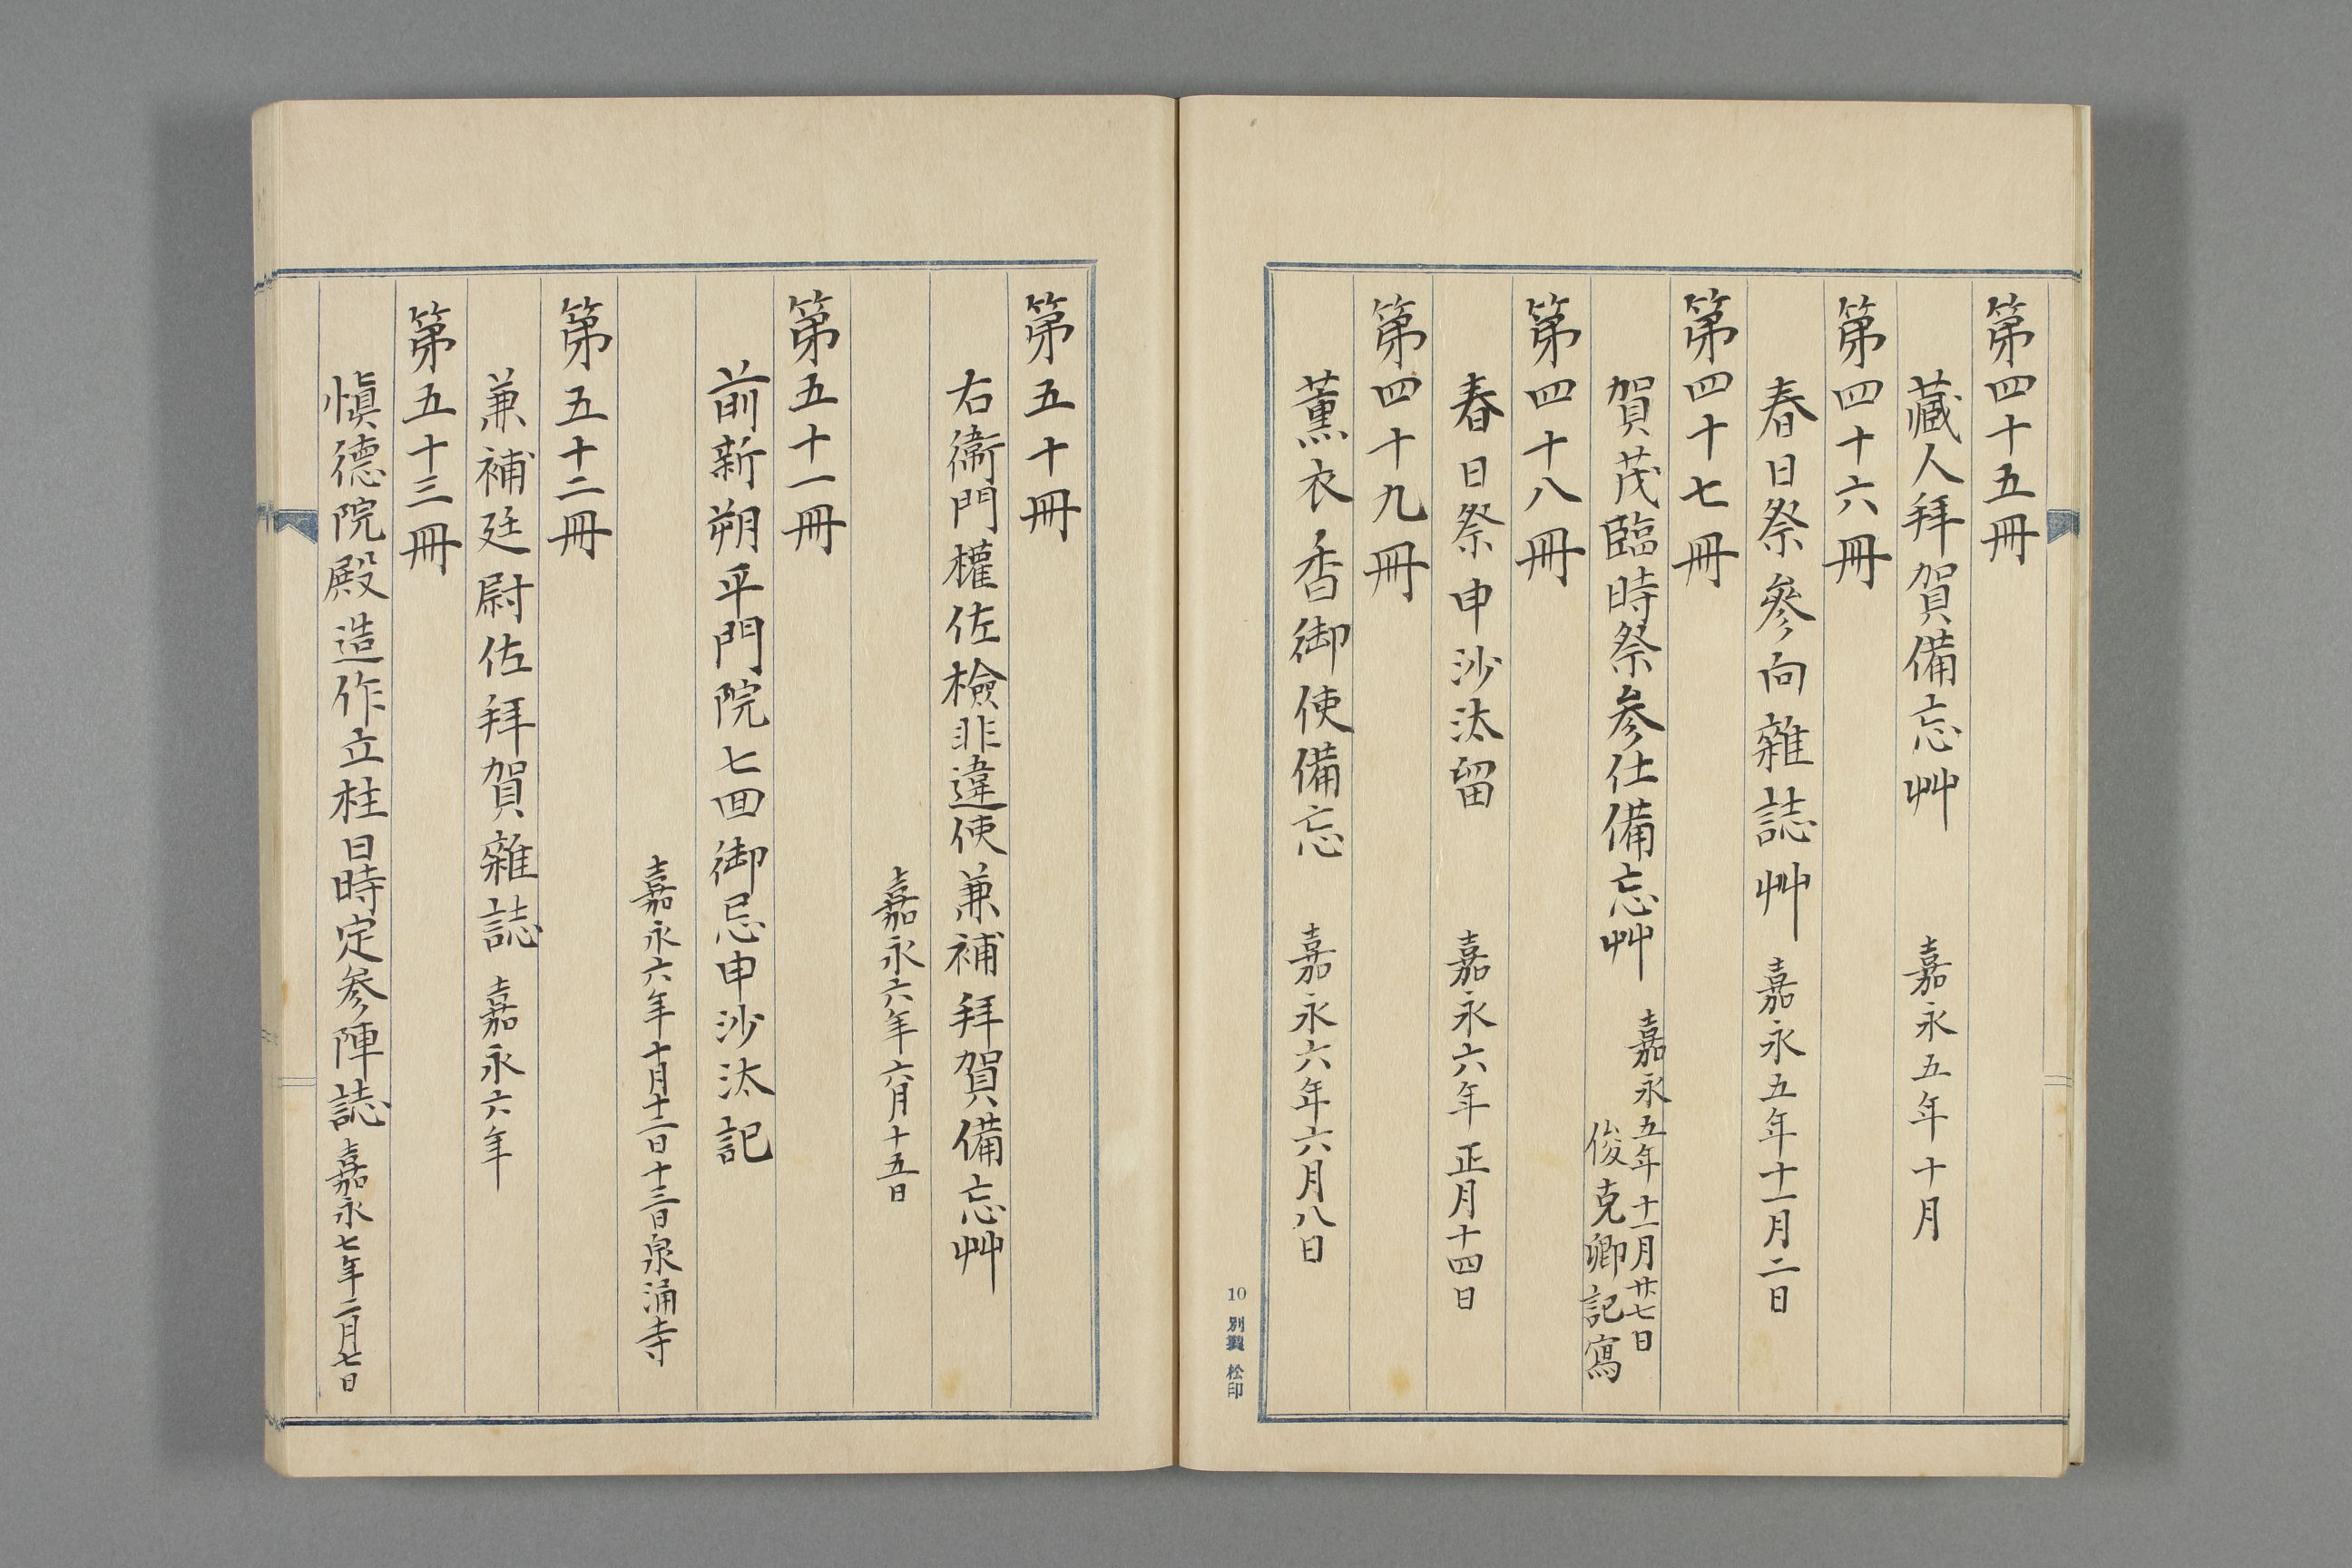 第四十五冊
藏人拜賀備忘艸　嘉永五年十月
第四十六冊
春日祭參向雜誌艸　嘉永五年十一月二日
第四十七冊
賀茂臨時祭参仕備忘艸　嘉永五年十一月廿七日
俊克卿記寫
第四十八冊
春日祭申沙汰留　嘉永六年正月十四日
第四十九冊
薫衣香御使備忘　嘉永六年六月八日
10 別製 松印
第五十冊
右衞門權佐檢非違使兼補拜賀備忘艸
嘉永六年六月十五日
第五十一冊
前新朔平門院七回御忌申沙汰記
嘉永六年十月十二日十三日泉涌寺
第五十二冊
兼補廷尉佐拜賀雜誌　嘉永六年
第五十三冊
愼德院殿造作立柱日時定参陣誌　嘉永七年二月七日